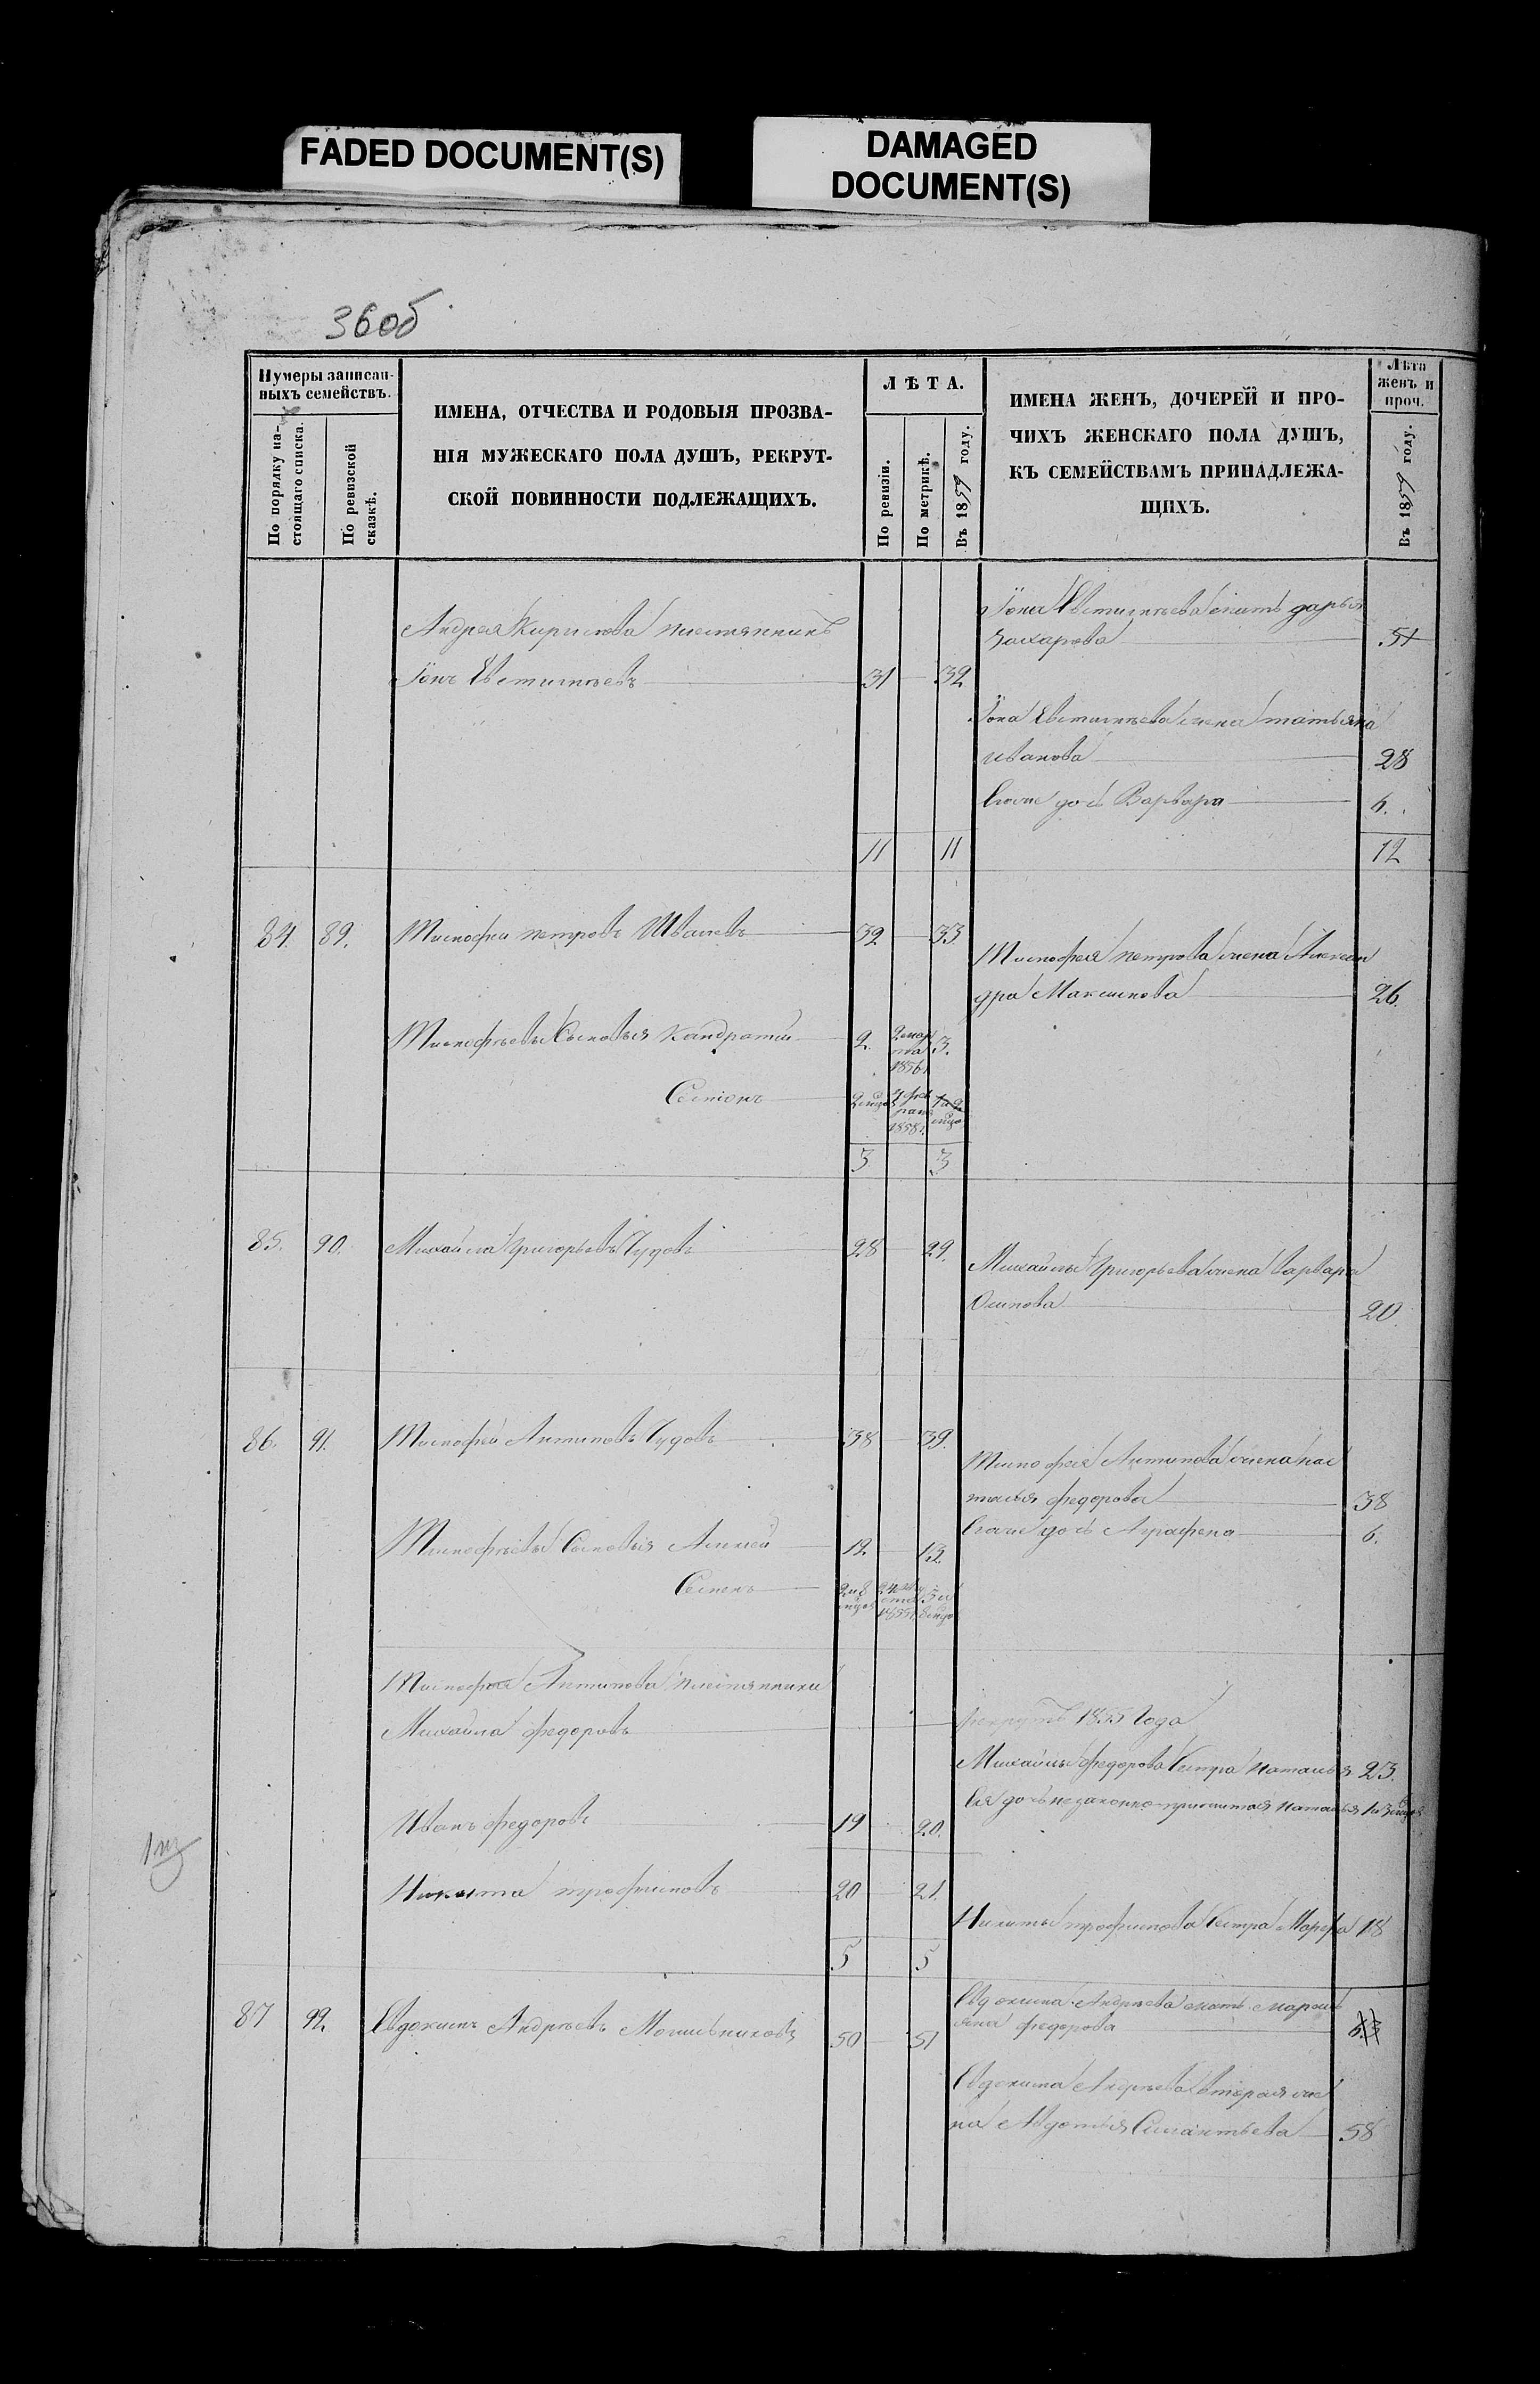 FADED DOCUMENT(S)
DAMAGED
DOCUMENT(S)
36об
Нумеры записан-
ныхъ семействъ.
По порядку на-
стоящаго списка.
По ревизской
сказкѣ.
ИМЕНА, ОТЧЕСТВА И РОДОВЫЯ ПРОЗВА-
НІЯ МУЖЕСКАГО ПОЛА ДУШЪ, РЕКРУТ-
СКОЙ ПОВИННОСТИ ПОДЛЕЖАЩИХЪ.
ЛѢТА.
По ревизіи.
По метрикѣ.
Въ 1859 году.
ИМЕНА ЖЕНЪ, ДОЧЕРЕЙ И ПРО-
ЧИХЪ ЖЕНСКАГО ПОЛА ДУШЪ,
КЪ СЕМЕЙСТВАМЪ ПРИНАДЛЕЖА-
ЩИХЪ.
Лѣта
женъ и
проч.
Въ 1859 году.
Іона Евстигнѣева мать дарья
Андрея Кирилова племянникъ
Захарова 51
Іонъ Евстигнѣевъ 31 32
Іона Евстигнѣева жена татьяна
иванова 28
дочь Варвара 6.
11 11 12
84. 89. Тимофей петровъ 32 33
Тимофея петрова жена Алексан
дра Максимова 26.
Тимофѣевы Сыновья Кандратій 2. 2 мар
та
1856 3.
Семіонъ
1858
3 3
85. 90. Михайла Григорьевъ Чудовъ 28 29.
Михайлы Григорьева жена варвара
Осипова 20.
86. 91. Тимофей Антиповъ Чудовъ 38 39.
Тимофея Антипова жена нас
тасья федорова 38
дочь Аграфена 6.
Тимофѣевы Сыновья Алексей 12. 13.
Семенъ 2 и 8
1855
Тимофея Антипова племянники
Михайла федоровъ рекрутъ 1855 года
Михайлы федорова Сестра наталья 23.
Ея дочь незаконно прижитая наталья
Иванъ федоровъ 19 20.
Никита трофимовъ 20 21.
Никиты трофимова Сестра Марфа 18
5 5
87 92. Евдокимъ Андрѣевъ 50 51
Евдокима Андрѣева мать
федорова
Евдокима Андрѣева вторая же
на Авдотья 58